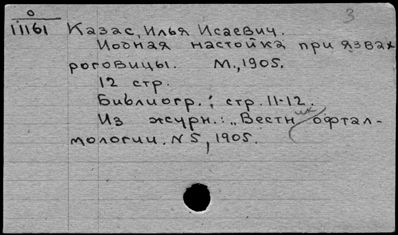 3
о
111161
Казас, Илья Исаевич.
Иодная настойка при язвах
роговицы. М., 1905.
12 стр.
Библиогр.: стр. 11-12.
Из журн.: „Вестник офтал-
мологии. N 5, 1905.